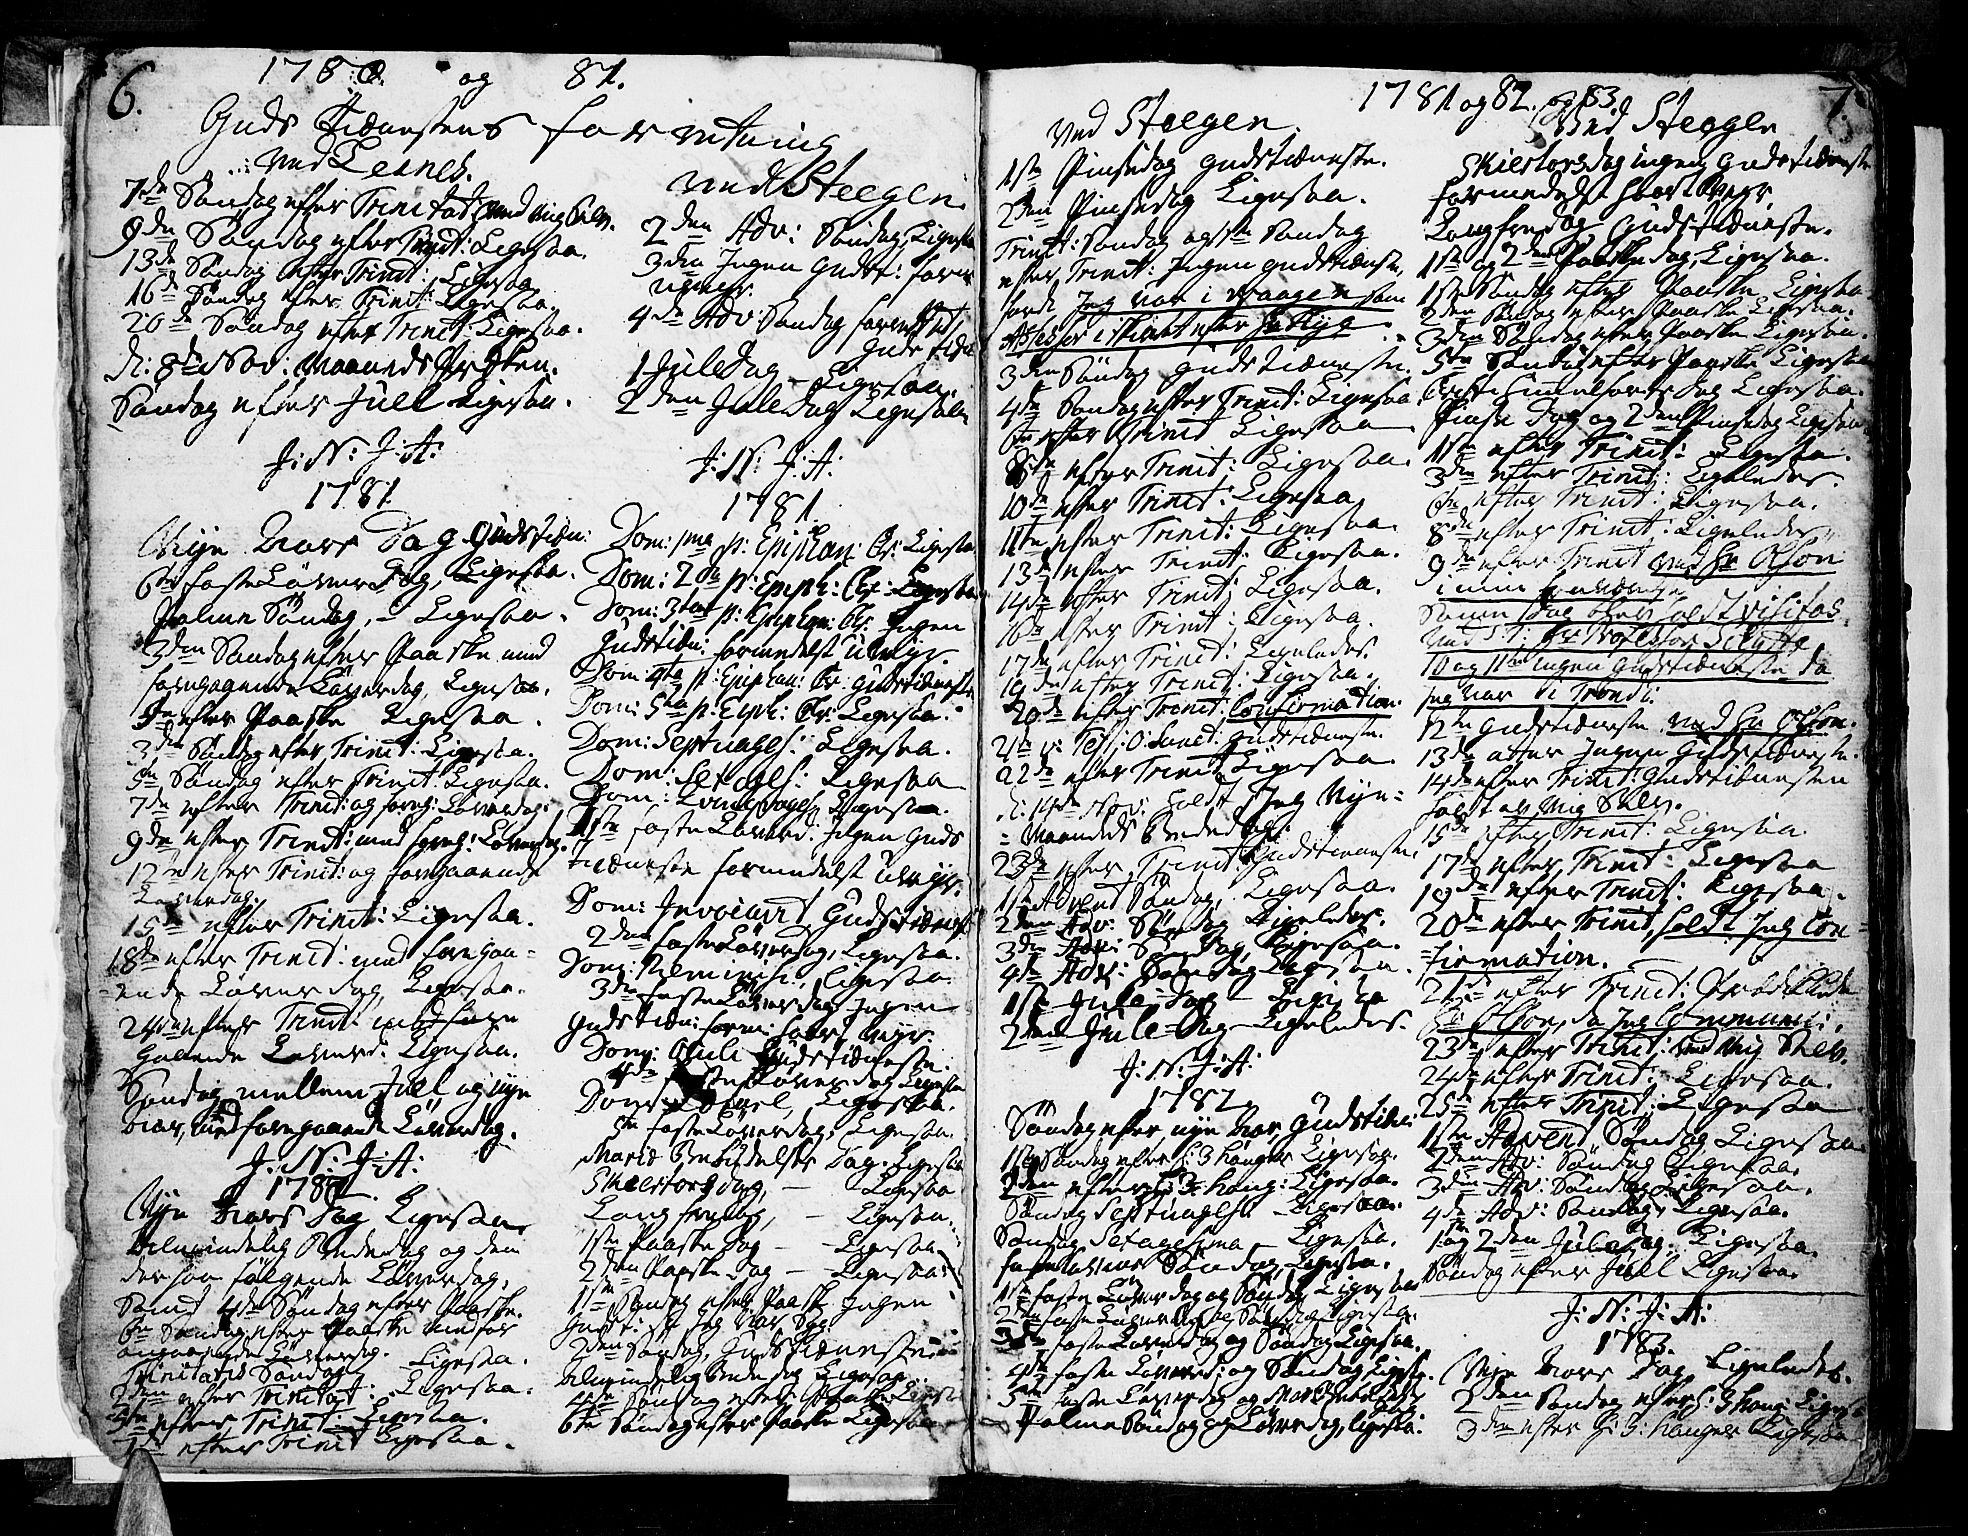 6.
1780. og 81.
Guds Tiænestens forretning
ved Leines.
7de Søndag efter Trinitat: ved mig Selv.
9de Søndag efter Trinit: Ligesaa.
13de Søndag efter Trinit: Ligesaa
16de Søndag efter Trinit: Ligesaa.
20de Søndag efter Trinit: Ligesaa.
d: 8de Nov: Maaneds Præken.
Søndag efter Juul Ligesaa.
J: N: J: A:
1781
Nye Aars Dag Gudstiæn:
6te Faste Løverdag, Ligesaa.
Palme Søndag, - Ligesaa.
3den Søndag efter Paaske med
foregaaende Løverdag, Ligesaa.
5te efter Paaske Ligesaa.
3den Søndag efter Trinit: Ligesaa.
5te Søndag efter Trinit: Ligesaa.
7de efter Trinit: og foreg: Løverdag.
9de efter Trinit: med foreg: Løverdag.
12te efter Trinit: og foregaaende
Løverdag.
15de efter Trinit: Ligesaa.
18de efter Trinit: med foregaa-
ende Løverdag, Ligesaa.
24de efter Trinit: med fore
gaaende Løverd: Ligesaa.
Søndag mellem Juul og nye
Aar, med foregaaende Løverdag.
J: N: J: A:
1782.
Nye Aars Dag Ligesaa,
Almindelig Bededag og den
der paa følgende Løverdag,
Samt 4de Søndag efter Paaske.
6te Søndag efter Paaske med for
angaaende Løverdag.
Trinitatis Søndag Ligesaa.
2den efter Trinitat: Ligesaa.
efter Trinit: Ligesaa.
7de efter Trinit Ligesaa.
ved Steegen
2den Adv: Søndag, Ligesaa
3den Ingen Gudst: form:
uveyr.
4de Adv: Søndag forrettet
Guds tiæn
1 Jule Dag - Ligesaa.
2den Jule Dag Ligesaa
J: N: J: A:
1781.
Dom: 1ma p: Epiphan: Chr: Ligesaa
Dom: 2da p: Epiph: Chr: Ligesaa
Dom: 3tia p: Epiphan: Chr: Ingen
Gudstiæn: formedelst Uveyr.
Dom: 4ta p: Epiphan: Chr: Gudstiæneste
Dom: 5ta p: Epiph: Chr: Ligesaa.
Dom: Septuages: Ligesaa.
Dom: Sexages: Ligesaa
Dom: Qvinqvages: Ligesaa.
1ste Faste Løverd: Ingen Guds
tiæneste formedelst Uveyr.
Dom: Invocavit Gudstiænest
2den Faste Løverdag, Ligesaa.
Dom: Reminisc:, Ligesaa.
3die Faste Løverdag Ingen
Gudstiæn: form: haart Veyr.
Dom: Oculi Gudstiæneste.
4de Faste Løverdag Ligesaa
Dom: Ligesaa.
5te Faste Løverdag, Ligesaa.
Mariæ Bebudelses Dag. Ligesaa
Skiertorsdag, - Ligesaa
Lang fredag, - Ligesaa.
1ste Paaske Dag - Ligesaa
2den Paaske Dag - Ligesaa.
1ste Søndag efter Paaske Ingen
Gudst: da Jeg var syg.
2den Søndag, Gudstiæneste
Almindelig Bededag Ligesaa.
4de Søndag efter Paaske Ligesaa
6te Søndag efter Paaske Ligesaa
1781 og 82. og 83.
7.
ved Steegen.
1ste Pinsedag Gudstiæneste.
2den Pinsedag Ligesaa.
Trinit: Søndag og 1ste Søndag
efter Trinit: Ingen Gudstiæneste,
fordi Jeg var i Vaagen som
Assessor i Skiftet efter
3den Søndag Gudstiæneste.
4de Søndag efter Trinit: Ligesaa.
6te efter Trinit Ligesaa
8de efter Trinit: Ligesaa.
10de efter Trinit: Ligesaa,
11te efter Trinit: Ligesaa.
13de efter Trinit: Ligesaa.
14de efter Trinit: Ligesaa.
16de efter Trinit: Ligesaa.
17de efter Trinit: Ligeledes.
19de efter Trinit: Ligesaa.
20de efter Trinit: Confirmation.
21de Gudstiæneste.
22de efter Trinit: Ligesaa.
d: 14de Nov: holdt Jeg Nye-
Maaneds Bededag.
23de efter Trinit Gudstiæneste.
1ste Advent Søndag, Ligesaa.
2den Adv: Søndag Ligeledes.
3die Adv: Søndag, Ligesaa.
4de Adv: Søndag Ligesaa.
1ste Jule-Dag - Ligesaa
2den Jule-Dag - Ligeledes.
J: N: J: A:
1782.
Søndag efter nye Aar Gudstiæn:
1ste Søndag efter h: 3 Konger Ligesaa.
2den efter h: 3: Kong: Ligesaa.
Søndag Septuages: Ligesaa.
Søndag Sexagesima - Ligesaa.
Fastelavns Søndag, Ligesaa.
1ste Faste Løverdag og Søndag Ligesaa
2den Faste Løverdag og Søndag Ligesaa.
3die Faste Løverdag og Søndag Ligesaa.
4de Faste Løverd: og Søndag Ligesaa.
5te Faste Løverdag og Mariæ Bebudelses
Dag
Palme Søndag og Løverdag, Ligesaa.
ved Steegen
Skiertorsdag ingen Gudstiæneste
formedelst haart Veyr.
Langfredag Gudstiæneste.
1ste og 2den Paaskedag, Ligesaa.
1ste Søndag efter Paaske Ligesaa
2den Søndag efter Paaske Ligesaa.
3die Søndag efter Paaske Ligesaa.
5te Søndag efter Paaske Ligesaa
Christi Himmelfarts Dag Ligesaa.
Pinse Dag og 2den Pinsedag Ligesaa
1ste efter Trinit: Ligesaa.
3die efter Trinit: Ligeledes.
6te efter Trinit: Ligesaa.
8de efter Trinit: Ligeledes.
9de efter Trinit ved Hr Olson
i min fraværelse
Samme Dag blev holdt Visitas
ved
10 og 11te Ingen Gudstiæneste da
Jeg var i Trondh:
12te Gudstiæneste ved Hr Olson.
13de atter Ingen Gudstiæneste.
14de efter Trinit: Gudstiænesten
holdt av Mig Selv.
15de efter Trinit: Ligesaa.
17de efter Trinit: Ligesaa
19de efter Trinit: Ligesaa.
20de efter Trinit, holdt Jeg Con-
firmation.
21de efter Trinit: Prædikede
Hr Olson, da Jeg Communi:
23de efter Trinit: ved Mig Selv.
24de efter Trinit: Ligesaa.
25de efter Trinit: Ligesaa
1ste Advent Søndag Ligesaa
2den Adv: Søndag Ligesaa.
3die Adv: Søndag Ligesaa.
4de Adv: Søndag Ligesaa.
1 og 2den Juledag. Ligesaa.
Søndag efter Juul Ligesaa.
J: N: J: A:
1783.
Nye Aars Dag Ligeledes.
2den Søndag efter h: 3 Kong: Ligesaa
3den efter h: 3: Konger Ligesaa